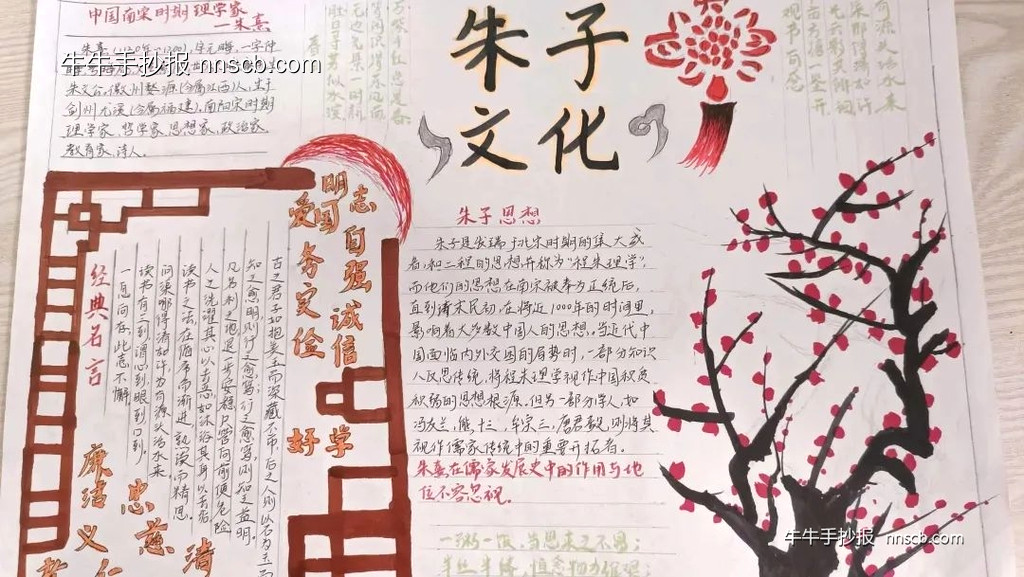 中国南宋时期理学家
—朱熹
牛牛手抄报·nnscb.com
剑州尤溪(今属福建),南宋时期
理学家、哲学家、思想家、政治家、
教育家、诗人。
朱子
文化
明志
爱国
自强
诚信
务实
俭
好学
经典名言
古之君子如抱美玉而深藏不市,后之人则以石为玉而
知之愈明,则行之愈笃;行之愈笃,则知之益明。
凡名利之地退一步便安稳,只管向前便危险
人之洗濯其心以去恶,如沐浴其身以去垢
读书之法,在循序而渐进,熟读而精思
问渠哪得清如许,为有源头活水来
读书有三到,谓心到、眼到、口到。
一息尚存,此志不懈
廉洁
义
忠
慈
朱子思想
朱子是发端于北宋时期的集大成
者,和二程的思想并称为“程朱理学”,
而他们的思想在南宋被奉为正统后,
直到清末民初,在将近1000年的时间里,
影响着大多数中国人的思想。当近代中
国面临内外交困的局势时,一部分知识
人反思传统,将程朱理学视作中国积贫
积弱的思想根源,但另一部分学人,如
冯友兰、熊十、牟宗三、唐君毅,则将其
视作儒家传统中的重要开拓者。
朱熹在儒家发展史中的作用与地
位不容忽视。
一粥一饭,当思来之不易;
半丝半缕,恒念物力维艰;
牛牛手抄报 nnscb.com